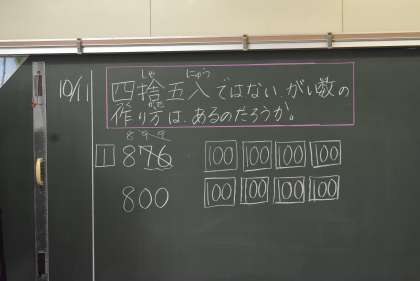 10/11
しゃ にゅう
四捨五入ではない、がい数の
作り方は、あるのだろうか。
1 876 100 100 100 100
800 100 100 100 100